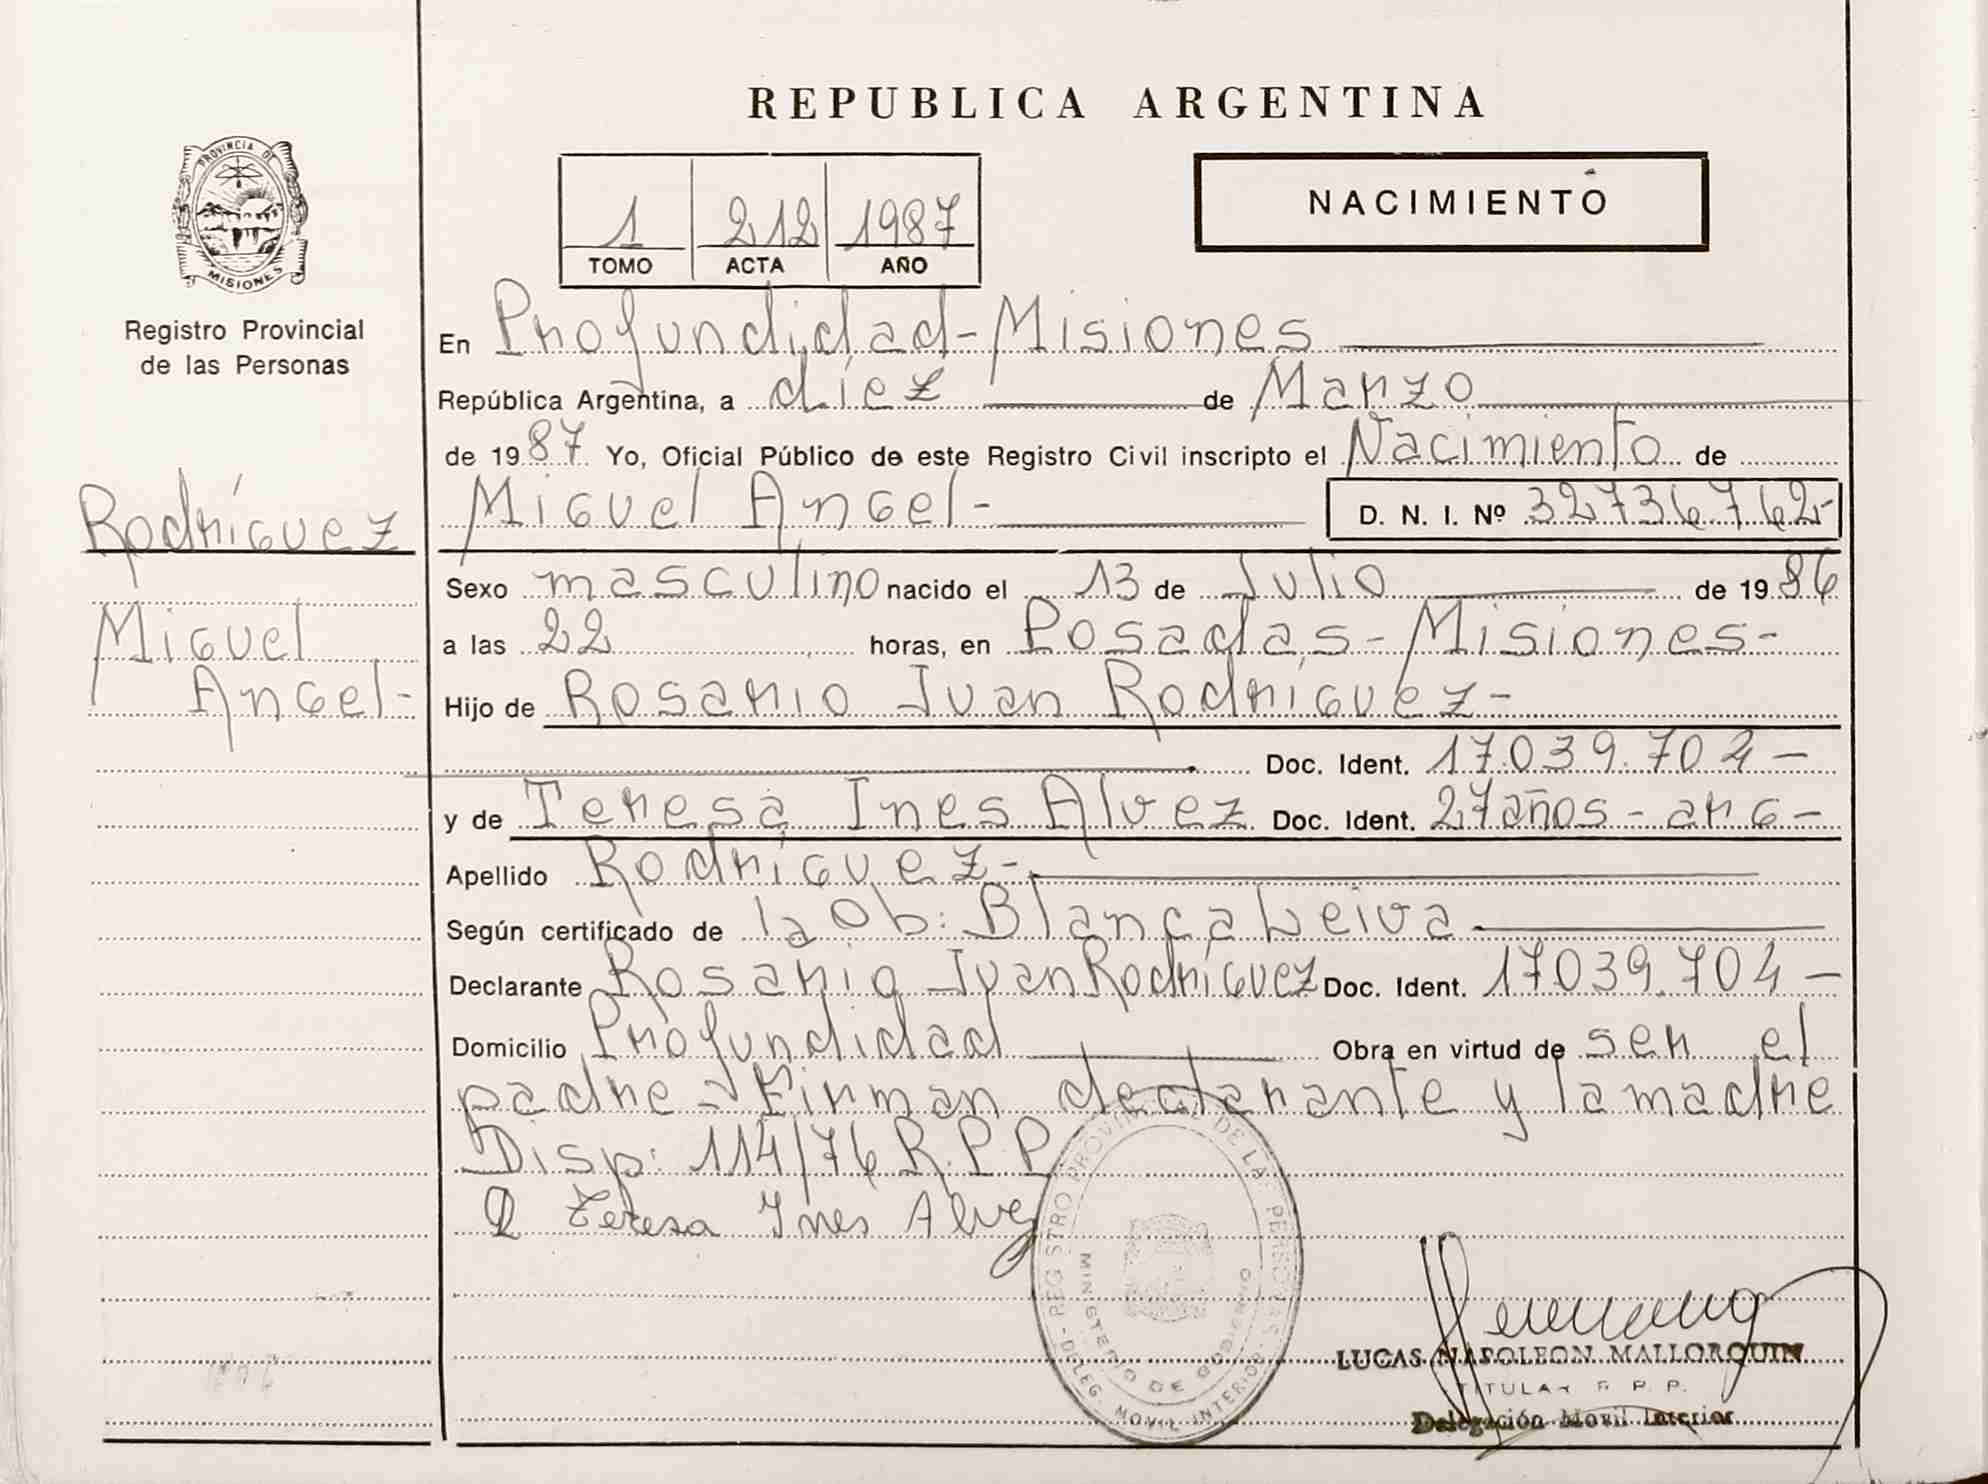 REPUBLICA ARGENTINA
PROVINCIA DE
MISIONES
Registro Provincial
de las Personas
1 212 1987
TOMO ACTA AÑO
NACIMIENTO
En Profundidad - Misiones
República Argentina, a diez de Marzo
de 1987 Yo, Oficial Público de este Registro Civil inscripto el Nacimiento de
Rodríguez
Miguel Angel - D. N. I. Nº 32736762-
Sexo masculino nacido el 13 de Julio de 1986
Miguel
Angel-
a las 22 horas, en Posadas - Misiones -
Hijo de Rosario Juan Rodríguez -
Doc. Ident. 17.039.704 -
y de Teresa Ines Alvez Doc. Ident. 27 años - arg -
Apellido Rodríguez -
Según certificado de la Ob: Blanca Leiva
Declarante Rosario Juan Rodríguez Doc. Ident. 17039.704 -
Domicilio Profundidad Obra en virtud de ser el
padre - Firman declarante y la madre
Disp: 114/76 R.P.P
Teresa Ines Alvez
REGISTRO PROVINCIAL DE LAS PERSONAS
MINISTERIO DE GOBIERNO
DELEG. MOVIL INTERIOR
LUCAS NAPOLEON MALLORQUIN
TITULAR R. P. P.
Delegación Movil Interior